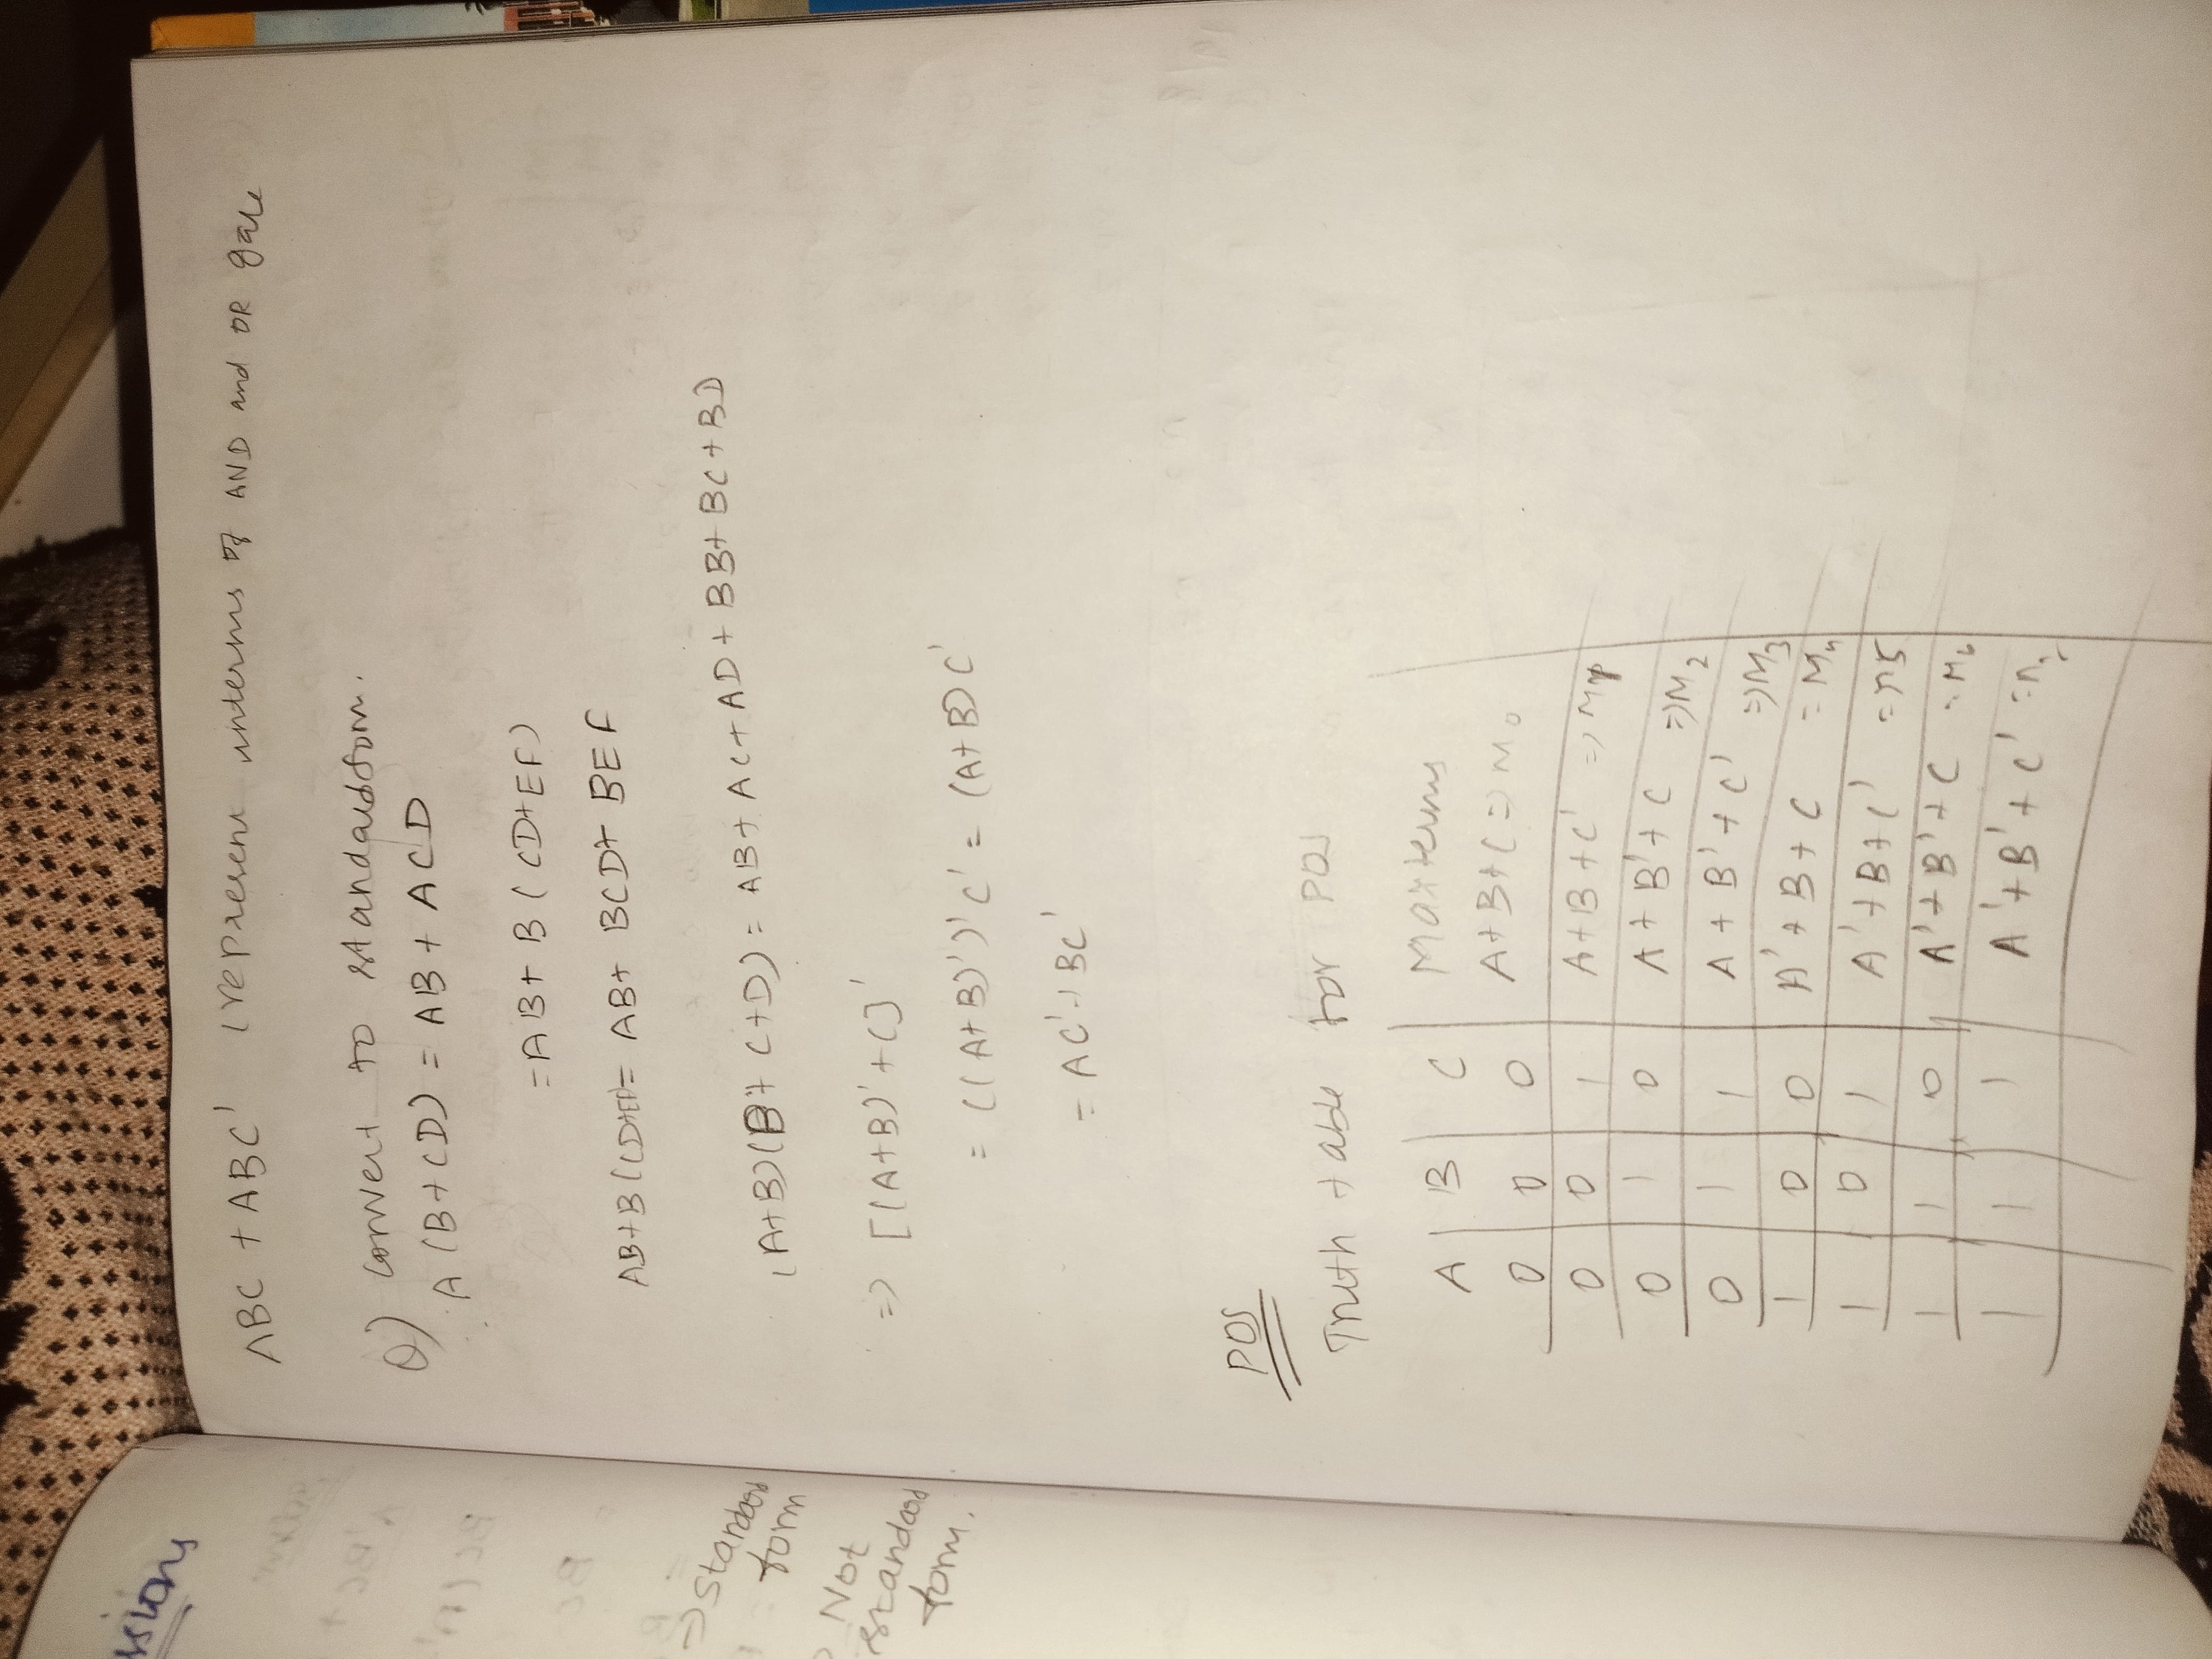 ssions
=) Standard
form
Not
standard
form.
ABC + ABC' (represent interms of AND and OR gate
Q) Convert to standardform.
A (B+CD) = AB + ACD
= AB + B (CD+EF)
AB+B(CD+EF)= AB+ BCD+ BEF
(A+B)(B+C+D) = AB+ AC+ AD+ BB+ BC+BD
=) [(A+B)'+C]'
= ((A+B)')'C' = (A+B)C'
= AC'+BC'
POS
Truth table for POS
A B C Maxterms
0 0 0 A+B+C => M0
0 0 1 A+B+C' =>
0 1 0 A+B'+C =)M2
0 1 1 A+B'+C' =)M3
1 0 0 A'+B+C = M4
1 0 1 A'+B+C' = M5
1 1 0 A'+B'+C = M6
1 1 1 A'+B'+C' =